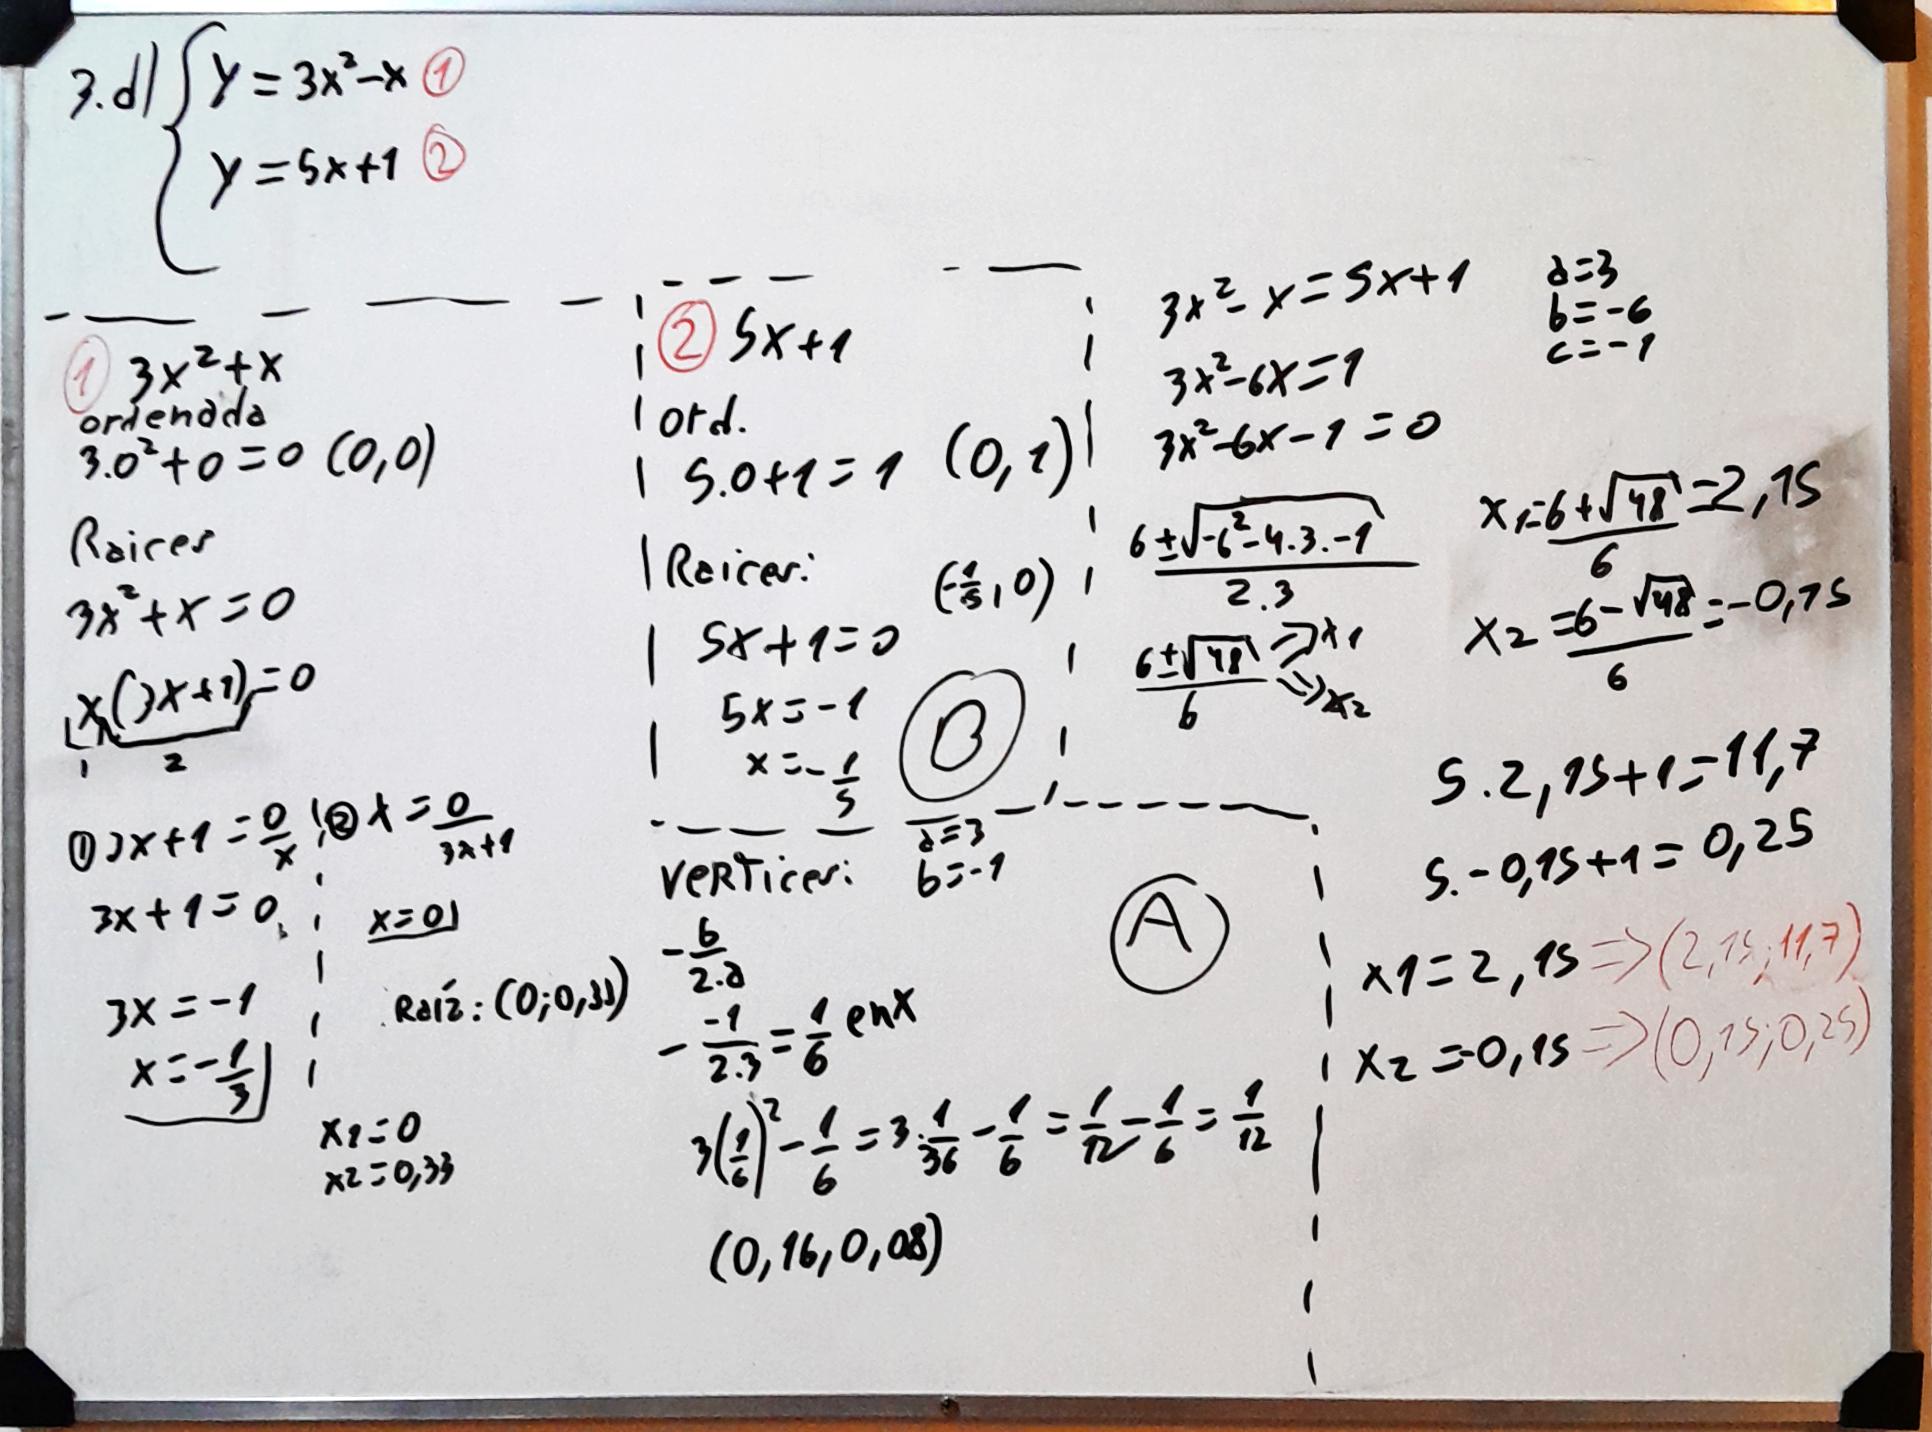 3.d) { y = 3x²-x ①
y = 5x+1 ②
① 3x²+x
ordenada
3.0²+0=0 (0,0)
Raices
3x²+x=0
x(3x+1)=0
1 2
① 3x+1=0/x
3x+1=0
3x=-1
x=-1/3
② x=0/3x+1
x=0
Raíz: (0;0,33)
x1=0
x2=0,33
② 5x+1
ord.
5.0+1=1 (0,1)
Raices: (-1/5,0)
5x+1=0
5x=-1
x=-1/5
B
vERTices: a=3
b=-1
A
-b/2.a
- -1/2.3 = 1/6 en x
3(1/6)²-1/6=3.1/36-1/6=1/12-1/6=1/12
(0,16,0,08)
3x²-x=5x+1
3x²-6x=1
3x²-6x-1=0
a=3
b=-6
c=-1
6±√-6²-4.3.-1
2.3
6±√48 => x1
6 => x2
x1=6+√48/6=2,15
x2=6-√48/6=-0,15
5.2,15+1=11,7
5.-0,15+1=0,25
x1=2,15 => (2,15;11,7)
x2=-0,15 => (0,15;0,25)